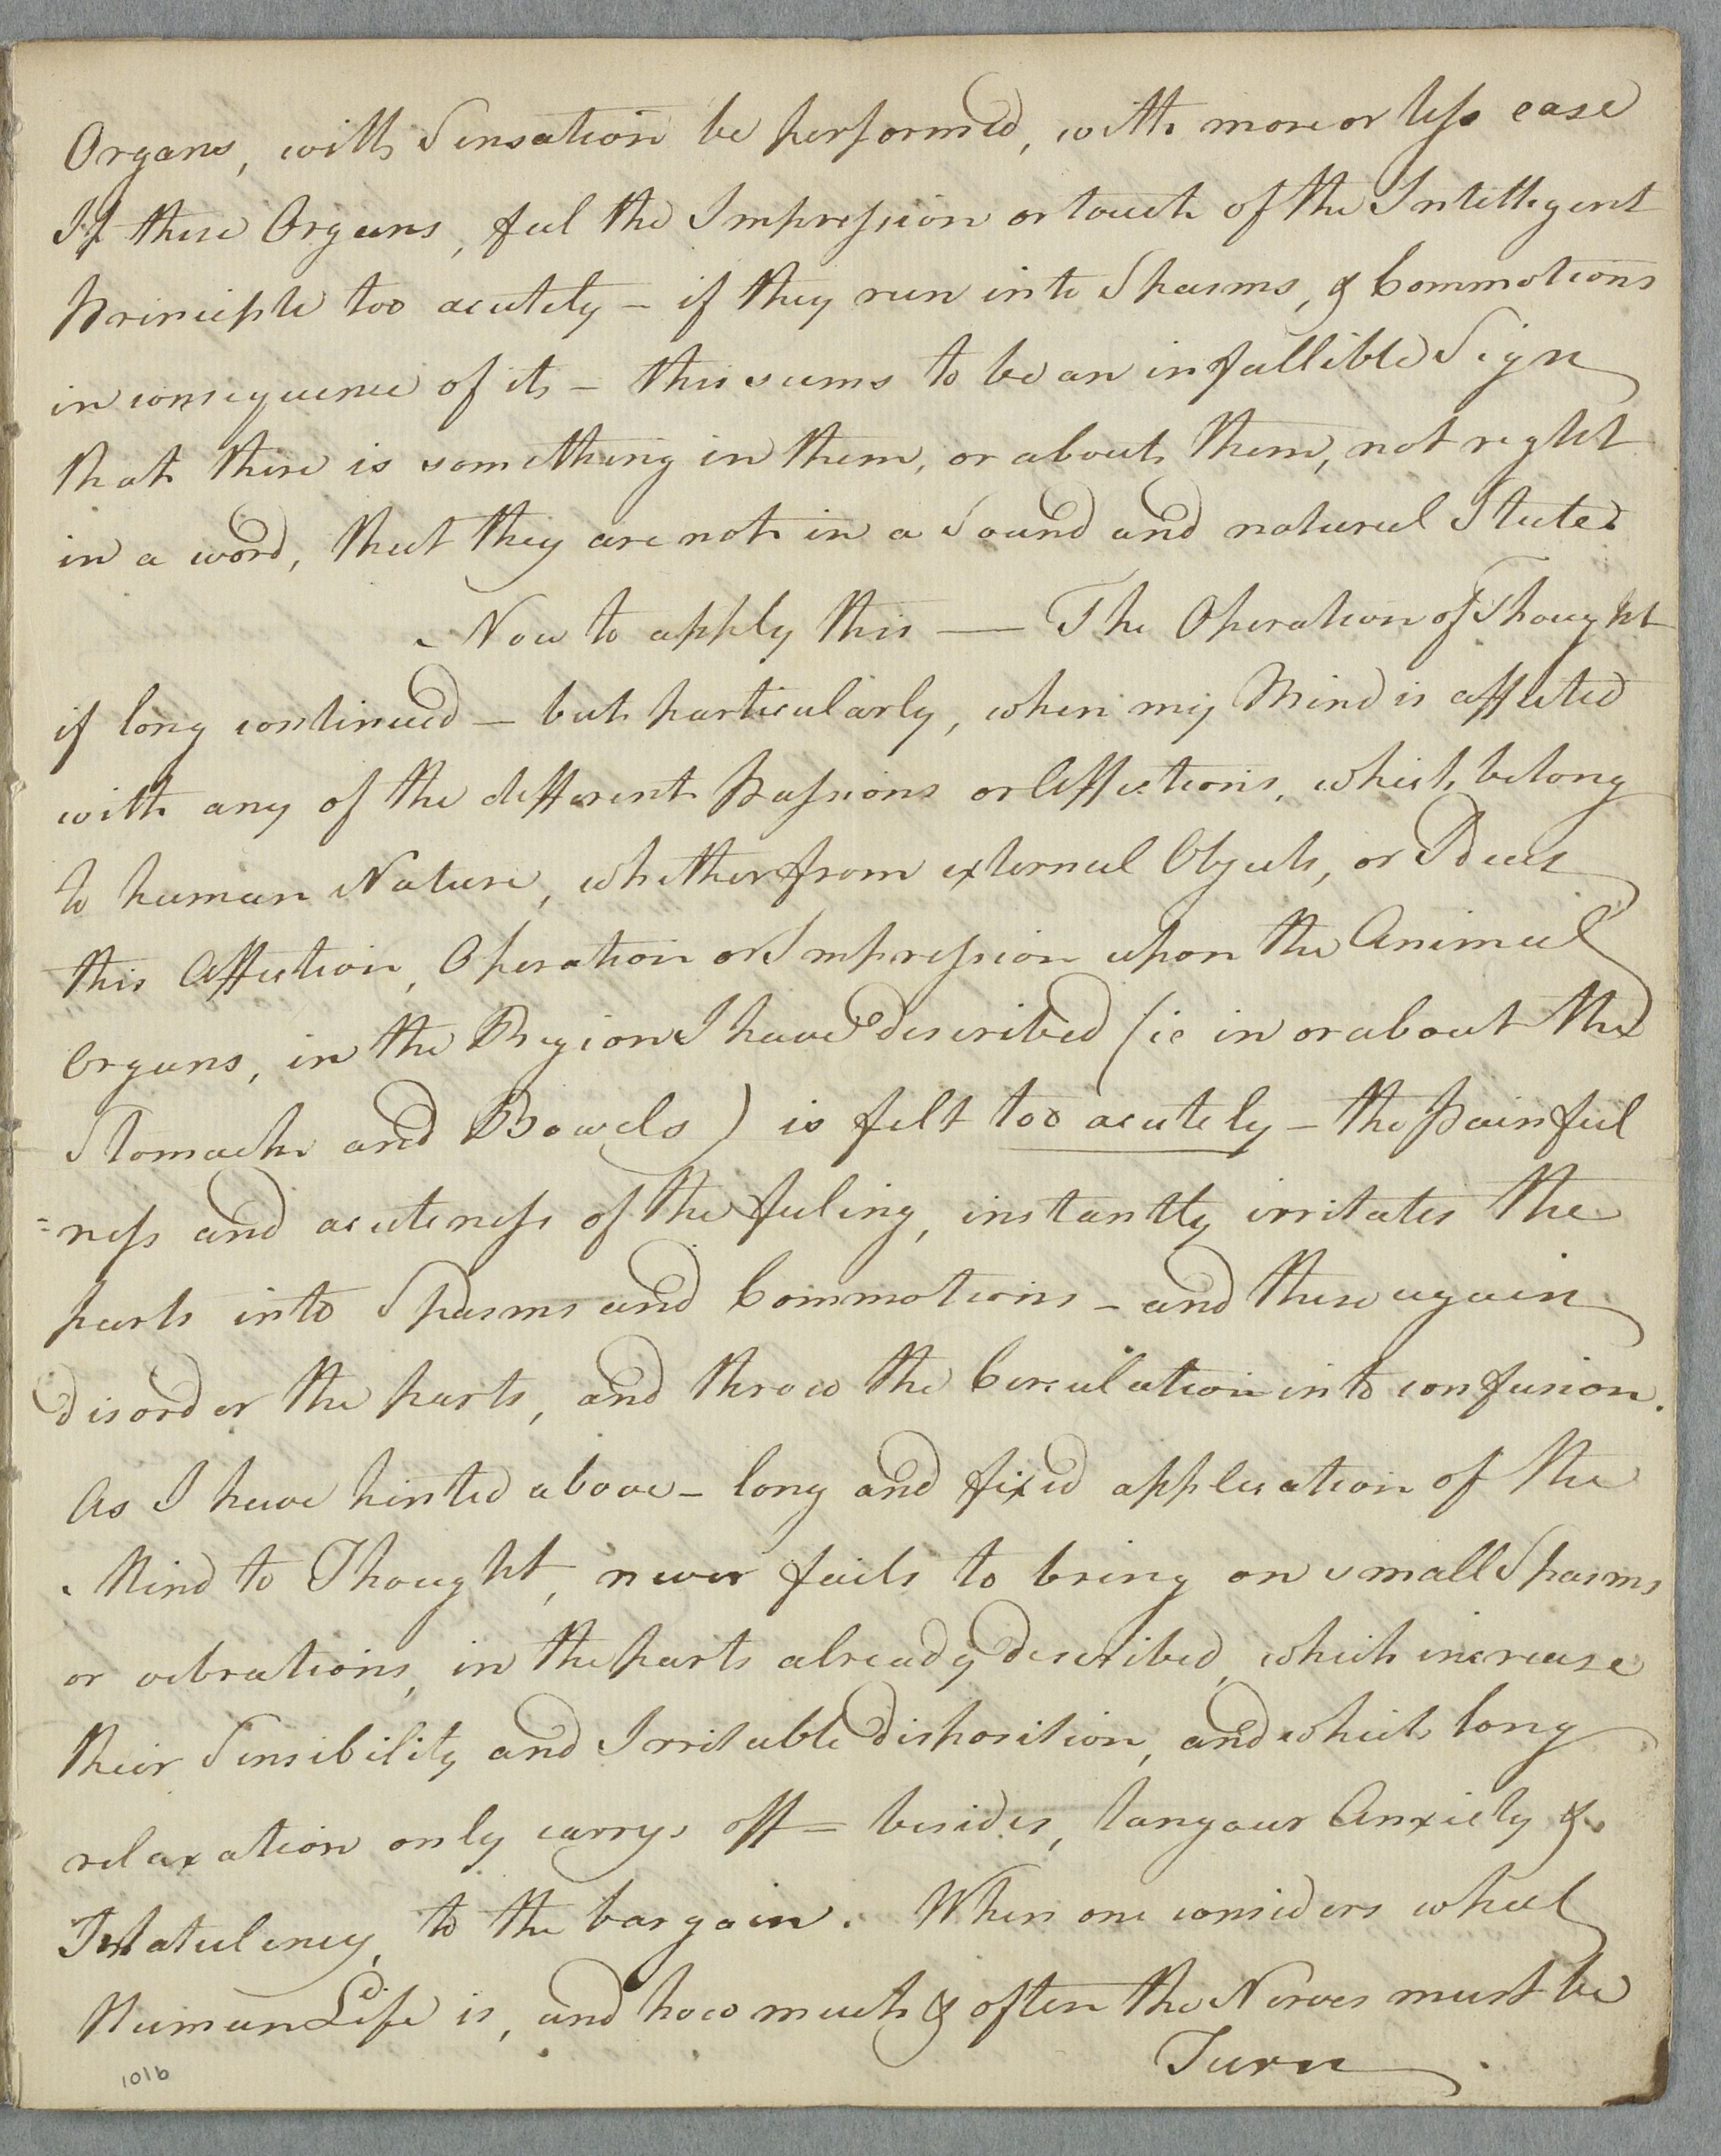 Organs, will Sensation be performed, with more or less ease
If these Organs, feel the Impression or touch of the Intelligent
Principle too acutely – if they run into Spasms, & Commotions
in consequence of it – this seems to be an infallible Sign
that there is something in them, or about them, not right
in a word, that they are not in a Sound and natural State.
Now to apply this — The Operation of Thought
if long continued – but particularly, when my Mind is affected
with any of the different Passions or Affections, which belong
to human Nature, whether from external Objects, or Ideas
this Affection, Operation or Impression upon the Animal
Organs, in the Region I have described (ie in or about the
Stomach and Bowels) is felt too acutely – the Painful
=ness and acuteness of the feeling, instantly irritates the
parts into Spasms and Commotions – and these again
disorder the parts, and throw the Circulation into confusion.
As I have hinted above – long and fixed application of the
Mind to Thought, never fails to bring on small Spasms
or vibrations, in the parts already described, which increase
their Sensibility and Irritable disposition, and which long
relaxation only carrys off = besides, langour Anxiety &
Flatulency, to the bargain. When one considers what
Human Life is, and how much & often the Nerves must be
Turn
101b